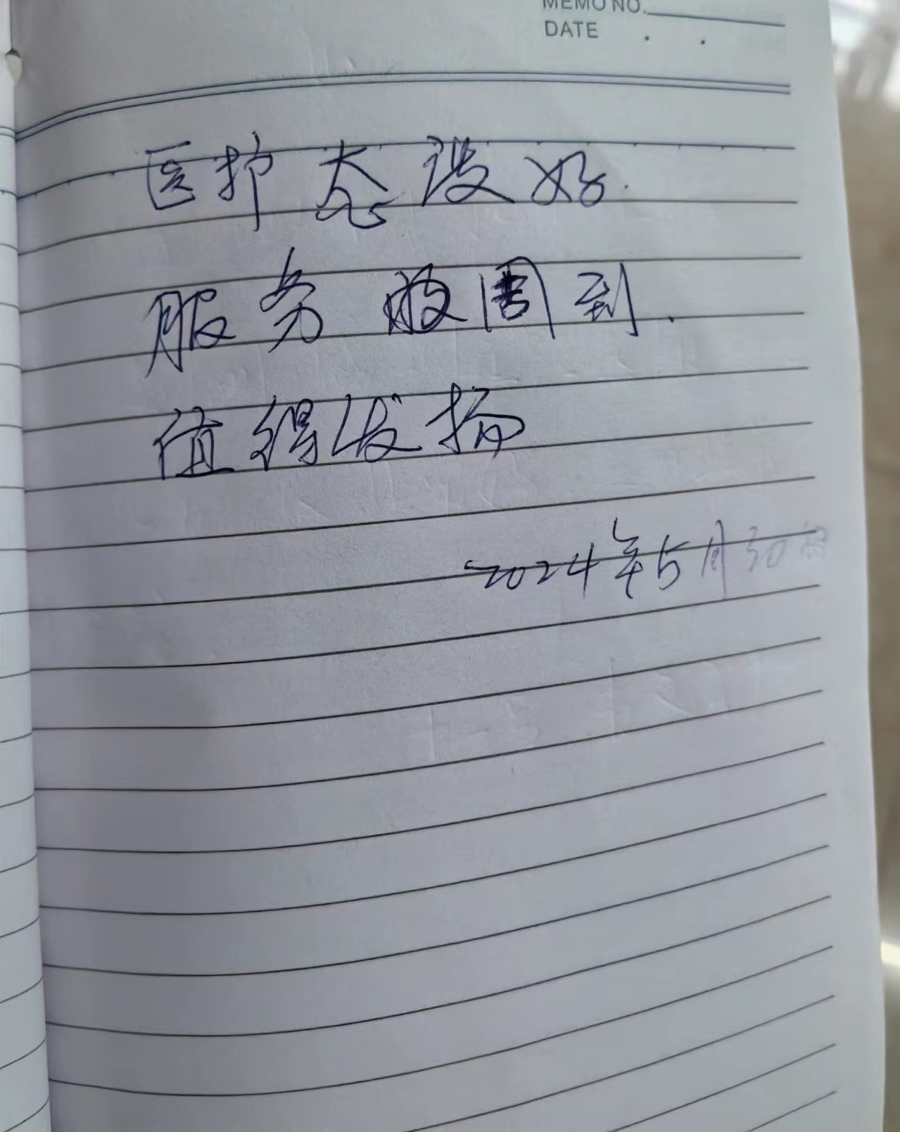 MEMO NO.
DATE
医护态设好.
服务周到.
值得发扬
2024年5月30